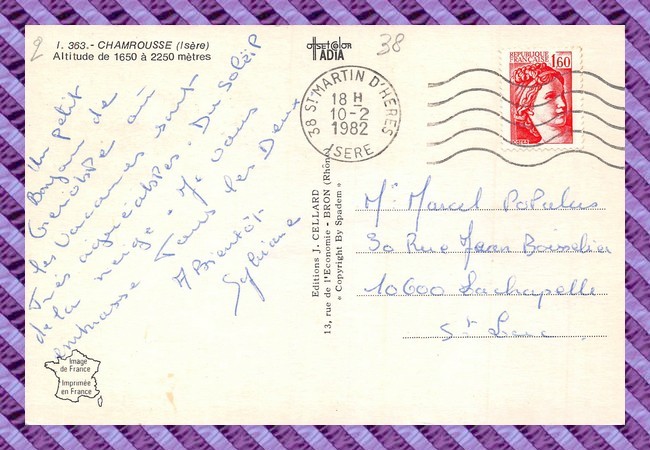 2
I. 363.- CHAMROUSSE (Isère)
Altitude de 1650 à 2250 mètres
offset color
IADIA
38
38 ST MARTIN D'HERES
18 H
10-2
1982
ISERE
REPUBLIQUE
FRANÇAISE
1,60
Un petit
Bonjour de
Grenoble où
les vacances sont
Très agréables. Du Soleil
de la neige. Je vous
embrasse Tous les Deux
A Bientôt
Sylviane
Editions J. CELLARD
13, rue de l'Economie - BRON (Rhône)
« Copyright By Spadem »
Mr Marcel
30 Rue Jean
10600 Lachapelle
St Luc
Image
de France
Imprimée
en France